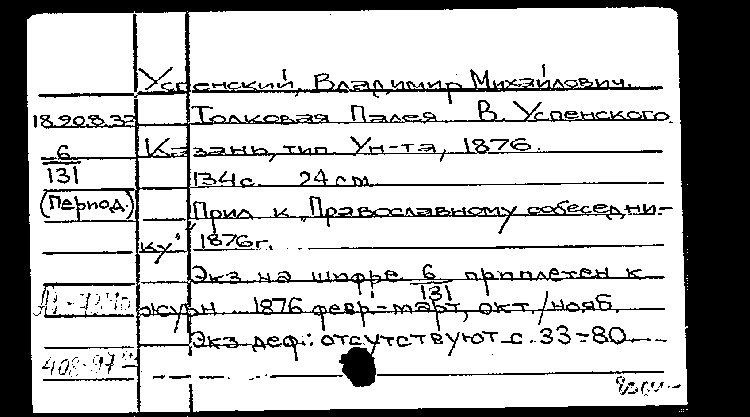 Успенский, Владимир Михайлович.
18.208.32 Толковая Палея В. Успенского
6/131 Казань, тип. Ун-та, 1876.
134 с. 24 см.
(Период.) Прил. к „Православному собеседни-
ку" 1876 г.
Экз. на шифре 6/131 приплетен к
журн. 1876 февр-март, окт./нояб.
Экз. деф.: отсутствуют с. 33-80.
408-97